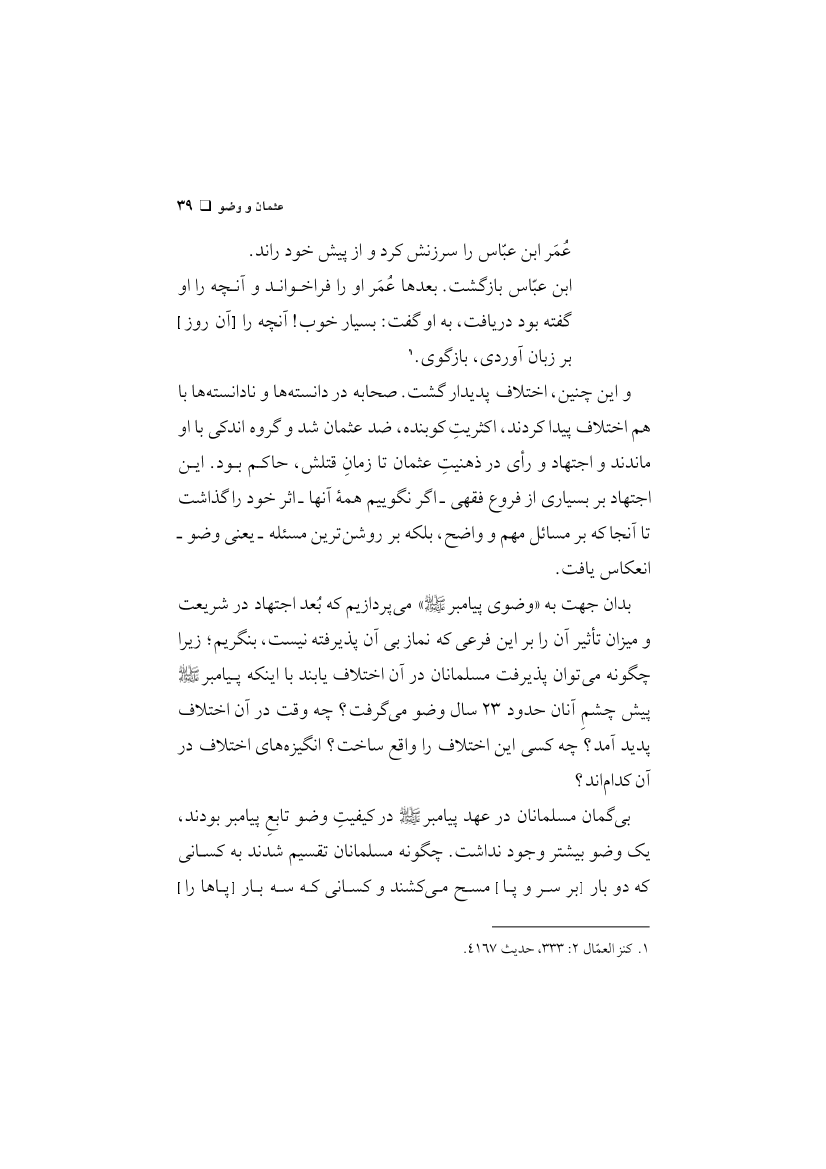 عثمان و وضو ❑ ۳۹
عُمَر ابن عبّاس را سرزنش کرد و از پیش خود راند.
ابن عبّاس بازگشت. بعدها عُمَر او را فراخواند و آنچه را او
گفته بود دریافت، به او گفت: بسیار خوب! آنچه را [آن روز]
بر زبان آوردی، بازگوی.۱
و این چنین، اختلاف پدیدار گشت. صحابه در دانسته‌ها و نادانسته‌ها با
هم اختلاف پیدا کردند، اکثریتِ کوبنده، ضد عثمان شد و گروه اندکی با او
ماندند و اجتهاد و رأی در ذهنیتِ عثمان تا زمانِ قتلش، حاکم بود. این
اجتهاد بر بسیاری از فروع فقهی ـ اگر نگوییم همهٔ آنها ـ اثر خود را گذاشت
تا آنجا که بر مسائل مهم و واضح، بلکه بر روشن‌ترین مسئله ـ یعنی وضو ـ
انعکاس یافت.
بدان جهت به «وضوی پیامبر ﷺ» می‌پردازیم که بُعد اجتهاد در شریعت
و میزان تأثیر آن را بر این فرعی که نماز بی آن پذیرفته نیست، بنگریم؛ زیرا
چگونه می‌توان پذیرفت مسلمانان در آن اختلاف یابند با اینکه پیامبر ﷺ
پیش چشمِ آنان حدود ۲۳ سال وضو می‌گرفت؟ چه وقت در آن اختلاف
پدید آمد؟ چه کسی این اختلاف را واقع ساخت؟ انگیزه‌های اختلاف در
آن کدام‌اند؟
بی‌گمان مسلمانان در عهد پیامبر ﷺ در کیفیتِ وضو تابعِ پیامبر بودند،
یک وضو بیشتر وجود نداشت. چگونه مسلمانان تقسیم شدند به کسانی
که دو بار [بر سر و پا] مسح می‌کشند و کسانی که سه بار [پاها را]
۱. کنز العمّال ۲: ۳۳۳، حدیث ٤١٦٧.